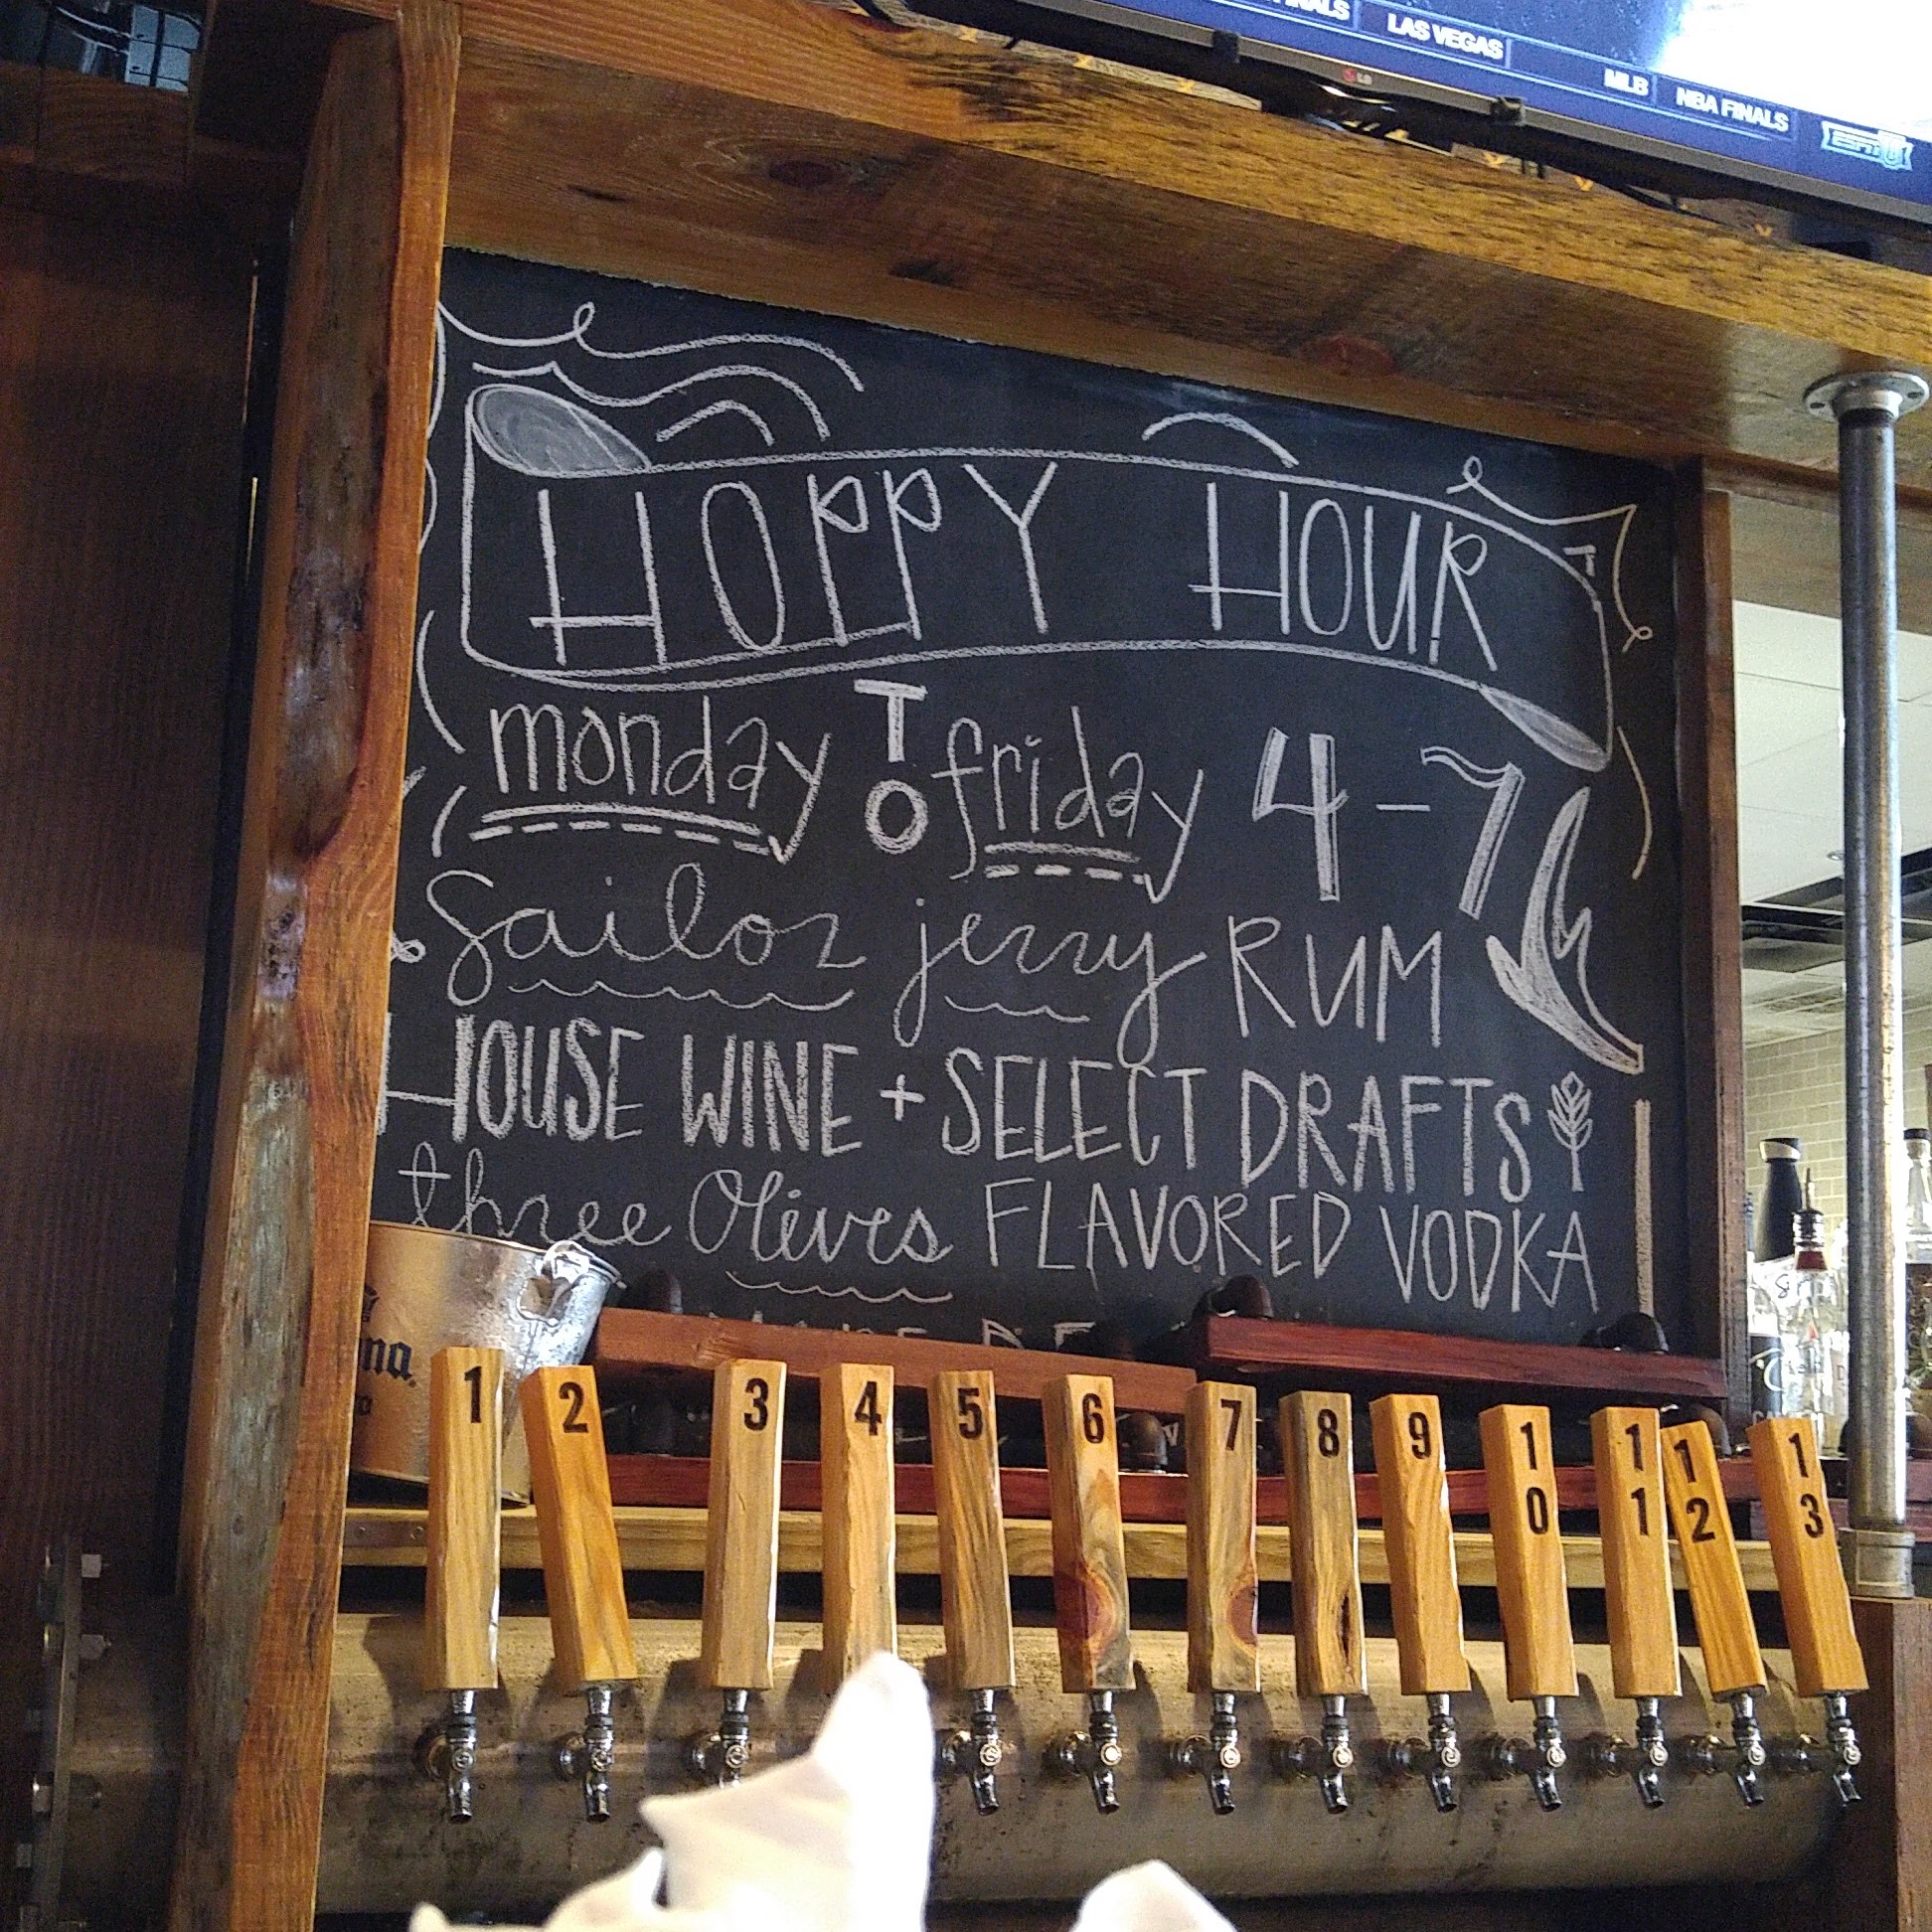 LAS VEGAS
MLB
NBA FINALS
LG
HOPPY HOUR
monday TO friday 4-7
Sailor jerry RUM
HOUSE WINE + SELECT DRAFTS
three Olives FLAVORED VODKA
1 2 3 4 5 6 7 8 9 10 11 12 13